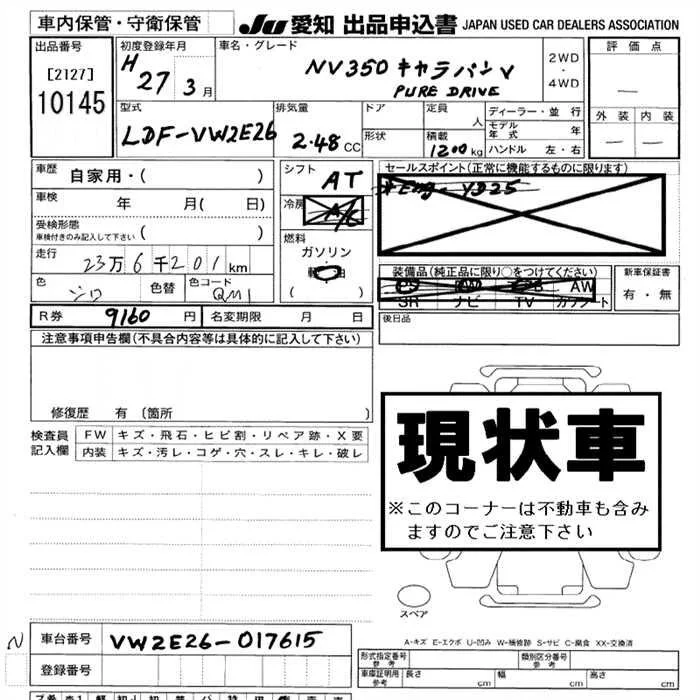 車内保管・守衛保管 JU 愛知 出品申込書 JAPAN USED CAR DEALERS ASSOCIATION
出品番号
[2127]
10145
初度登録年月
H 27 3 月
車名・グレード
NV350 キャラバン V
PURE DRIVE
2WD
・
4WD
評価点
—
外装 内装
— —
型式
LDF-VW2E26
排気量
2.48 CC
ドア
形状
定員
人
積載
1200 kg
ディーラー・並行
モデル年式 年
ハンドル 左・右
車歴 自家用・( )
車検 年 月( 日)
受検形態
車検付きのみ記入して下さい ( )
走行
23万6千201km
色 シロ 色替 色コード QM1
シフト
AT
冷房
A/C
燃料
ガソリン
軽油
( )
セールスポイント(正常に機能するものに限ります)
*Eng. YD25
装備品(純正品に限り○をつけてください)
AW
SR ナビ TV カワシート
新車保証書
有・無
R券 9160 円 名変期限 月 日
後日品
注意事項申告欄(不具合内容等は具体的に記入して下さい)
修復歴 有〔箇所 〕
検査員
記入欄
FW キズ・飛石・ヒビ割・リペア跡・X要
内装 キズ・汚レ・コゲ・穴・スレ・キレ・破レ
現状車
※このコーナーは不動車も含み
ますのでご注意下さい
スペア
A-キズ E-エクボ U-凹み W-補修跡 S-サビ C-腐食 XX-交換済
N 車台番号 VW2E26-017615
登録番号
形式指定番号
参考
類別区分番号
参考
車庫証明用
参考
長さ cm 幅 cm 高さ cm